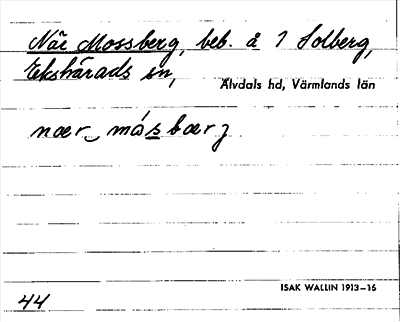 När Mossberg, beb. å 7 Solberg,
Ekshärads sn,
Älvdals hd, Värmlands län
nær mósbærj
ISAK WALLIN 1913–16
44